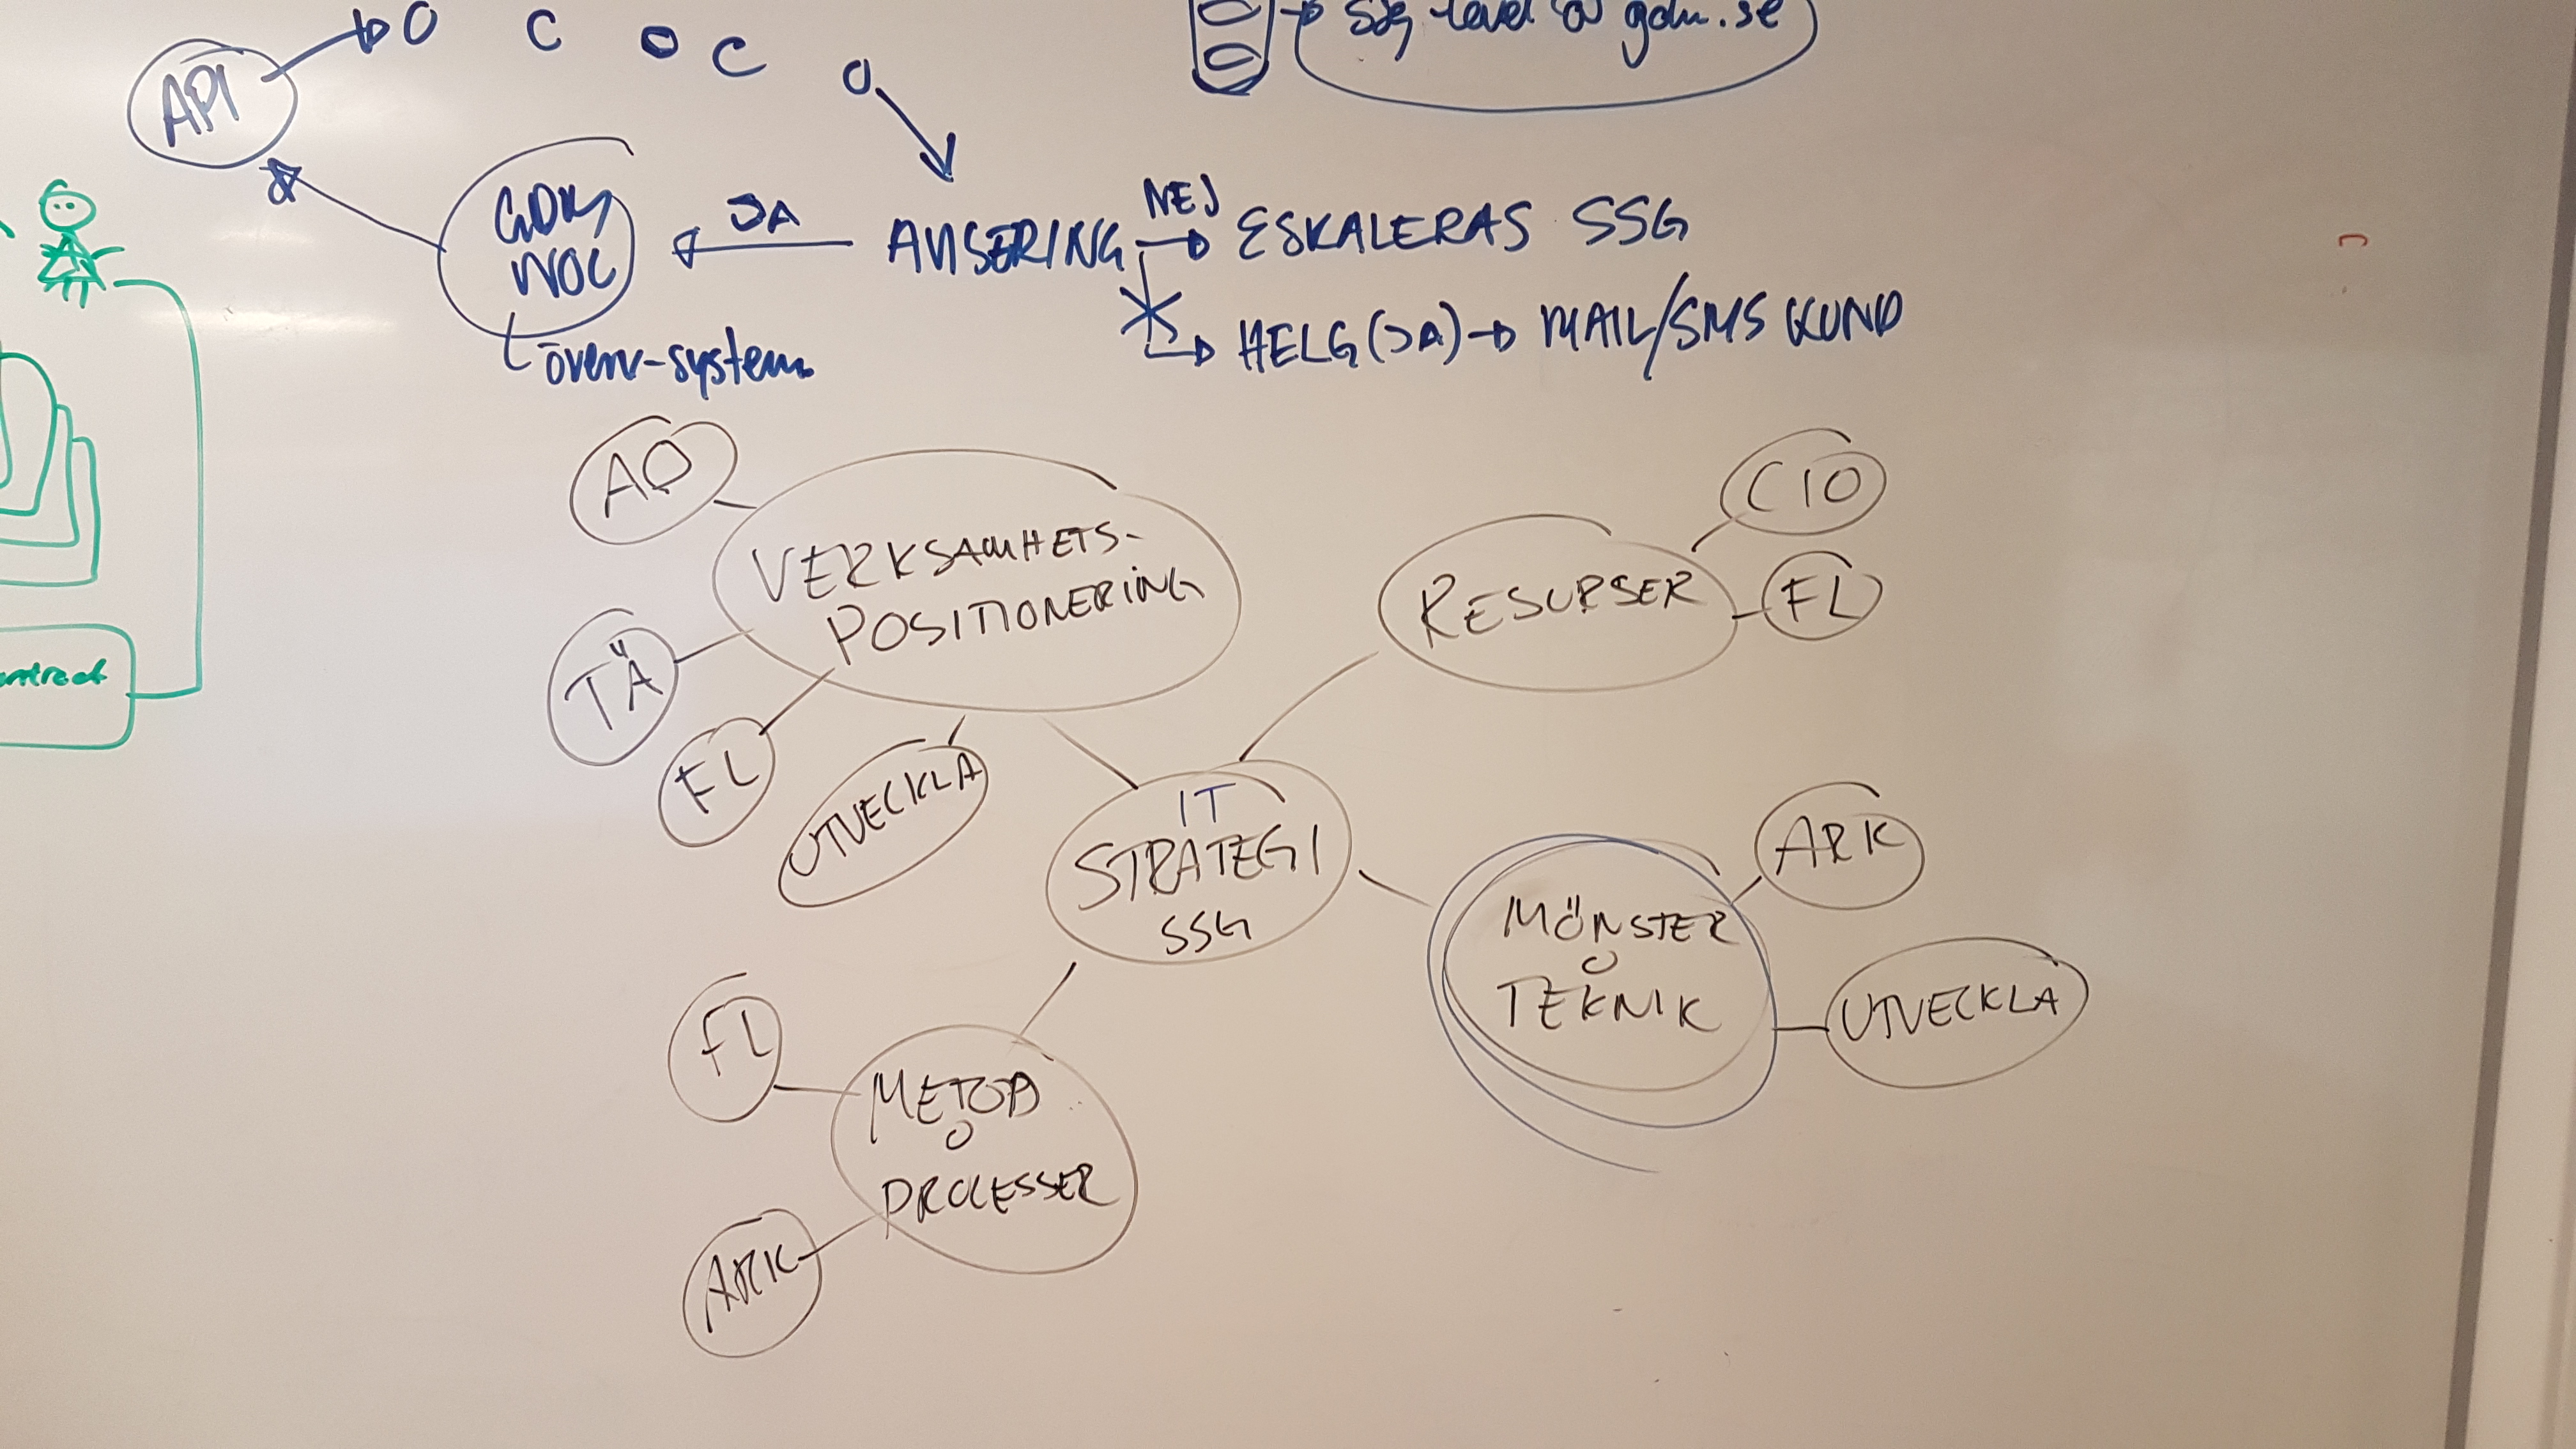 API
O C O C O
ssg-level @ gdm.se
GDM
NOC
JA
AVISERING
NEJ
ESKALERAS SSG
HELG (JA)
MAIL/SMS KUND
överv-system
AO
VERKSAMHETS-
POSITIONERING
TÄ
FL
UTVECKLA
RESURSER
CIO
FL
IT
STRATEGI
SSG
MÖNSTER
O
TEKNIK
ARK
UTVECKLA
FL
METOD
O
PROCESSER
ARK